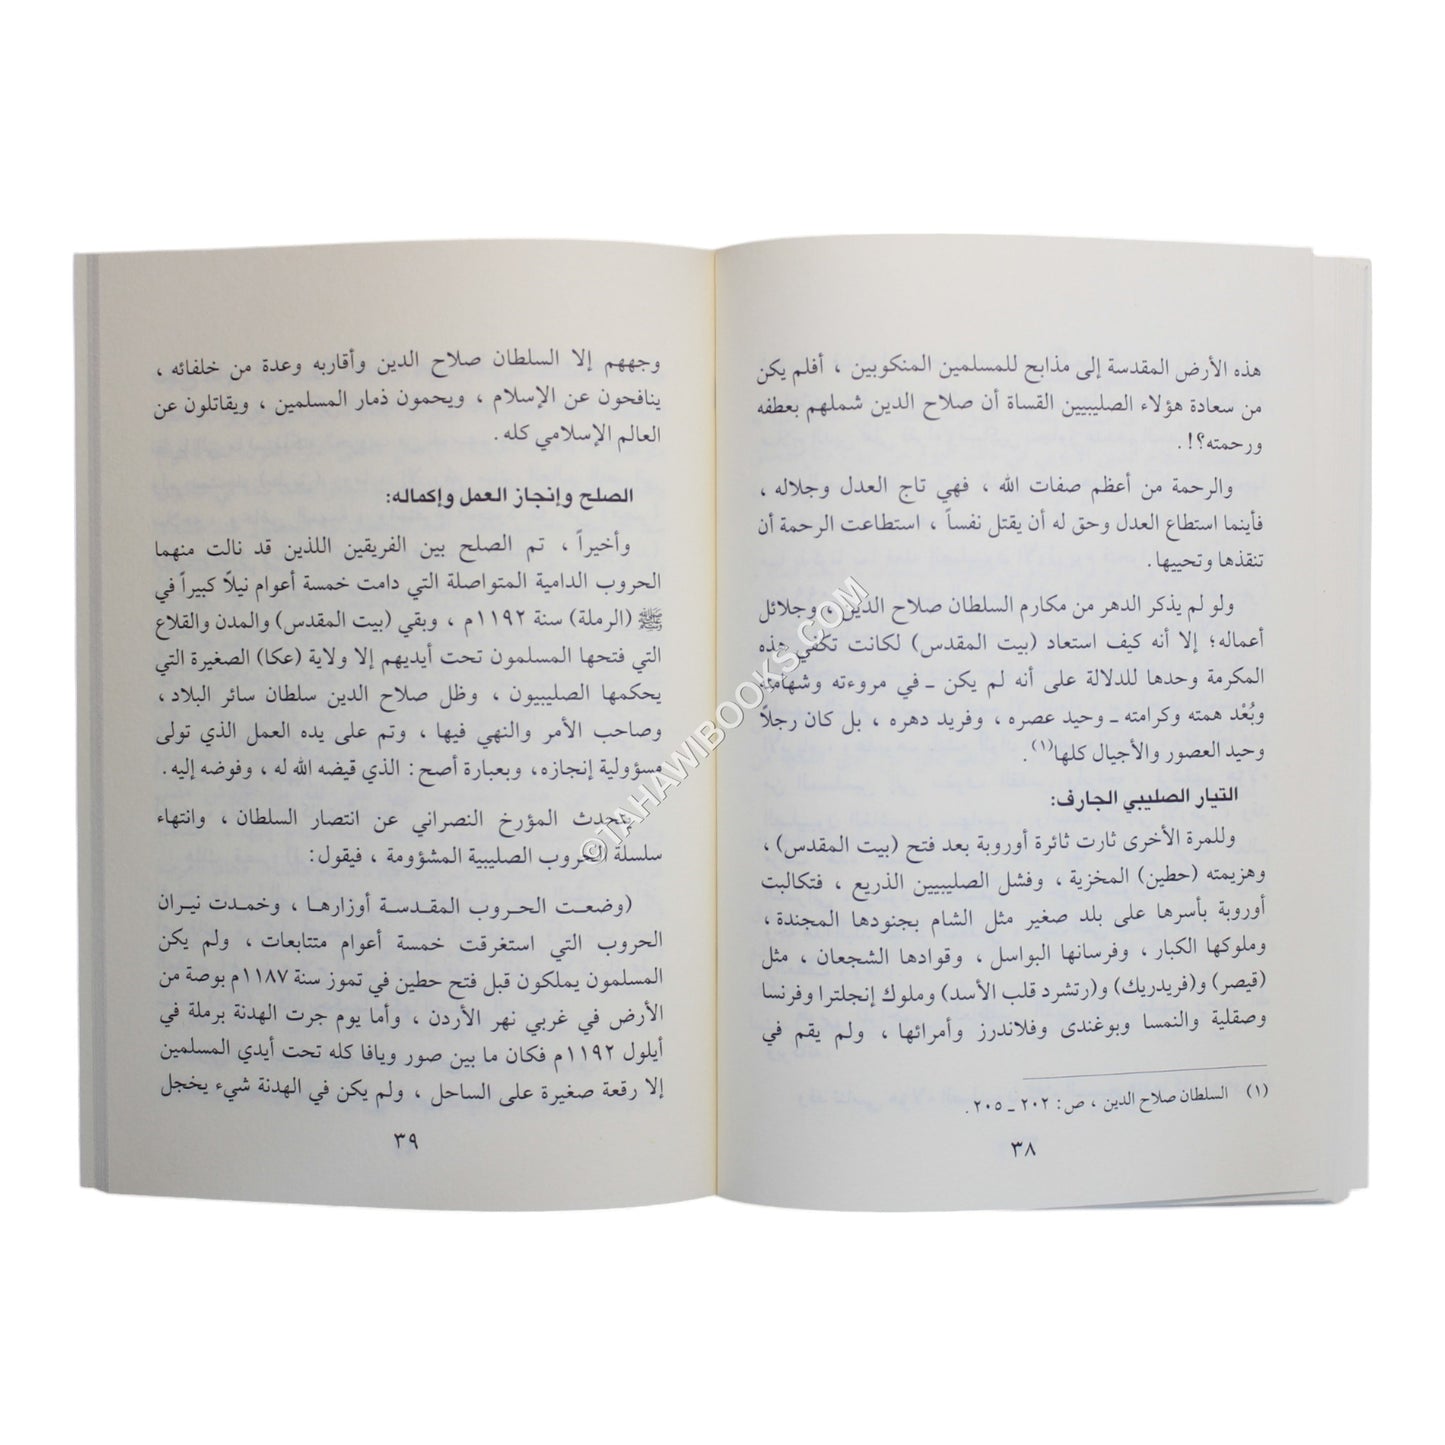 هذه الأرض المقدسة إلى مذابح للمسلمين المنكوبين ، أفلم يكن
من سعادة هؤلاء الصليبيين القساة أن صلاح الدين شملهم بعطفه
ورحمته؟! .
والرحمة من أعظم صفات الله ، فهي تاج العدل وجلاله ،
فأينما استطاع العدل وحق له أن يقتل نفساً ، استطاعت الرحمة أن
تنقذها وتحييها .
ولو لم يذكر الدهر من مكارم السلطان صلاح الدين ، وجلائل
أعماله؛ إلا أنه كيف استعاد (بيت المقدس) لكانت تكفي هذه
المكرمة وحدها للدلالة على أنه لم يكن ـ في مروءته وشهامته
وبُعْد همته وكرامته ـ وحيد عصره ، وفريد دهره ، بل كان رجلاً
وحيد العصور والأجيال كلها(١) .
التيار الصليبي الجارف:
وللمرة الأخرى ثارت ثائرة أوروبة بعد فتح (بيت المقدس) ،
وهزيمته (حطين) المخزية ، وفشل الصليبيين الذريع ، فتكالبت
أوروبة بأسرها على بلد صغير مثل الشام بجنودها المجندة ،
وملوكها الكبار ، وفرسانها البواسل ، وقوادها الشجعان ، مثل
(قيصر) و(فريدريك) و(رتشرد قلب الأسد) وملوك إنجلترا وفرنسا
وصقلية والنمسا وبوغندى وفلاندرز وأمرائها ، ولم يقم في
(١) السلطان صلاح الدين ، ص: ٢٠٢ ـ ٢٠٥ .
٣٨
وجههم إلا السلطان صلاح الدين وأقاربه وعدة من خلفائه ،
ينافحون عن الإسلام ، ويحمون ذمار المسلمين ، ويقاتلون عن
العالم الإسلامي كله .
الصلح وإنجاز العمل وإكماله:
وأخيراً ، تم الصلح بين الفريقين اللذين قد نالت منهما
الحروب الدامية المتواصلة التي دامت خمسة أعوام نيلاً كبيراً في
ﷺ (الرملة) سنة ١١٩٢م ، وبقي (بيت المقدس) والمدن والقلاع
التي فتحها المسلمون تحت أيديهم إلا ولاية (عكا) الصغيرة التي
يحكمها الصليبيون ، وظل صلاح الدين سلطان سائر البلاد ،
وصاحب الأمر والنهي فيها ، وتم على يده العمل الذي تولى
مسؤولية إنجازه، وبعبارة أصح: الذي قيضه الله له ، وفوضه إليه .
يتحدث المؤرخ النصراني عن انتصار السلطان ، وانتهاء
سلسلة الحروب الصليبية المشؤومة ، فيقول:
(وضعت الحروب المقدسة أوزارها ، وخمدت نيران
الحروب التي استغرقت خمسة أعوام متتابعات ، ولم يكن
المسلمون يملكون قبل فتح حطين في تموز سنة ١١٨٧م بوصة من
الأرض في غربي نهر الأردن ، وأما يوم جرت الهدنة برملة في
أيلول ١١٩٢م فكان ما بين صور ويافا كله تحت أيدي المسلمين
إلا رقعة صغيرة على الساحل ، ولم يكن في الهدنة شيء يخجل
٣٩
©TAHAWIBOOKS.COM